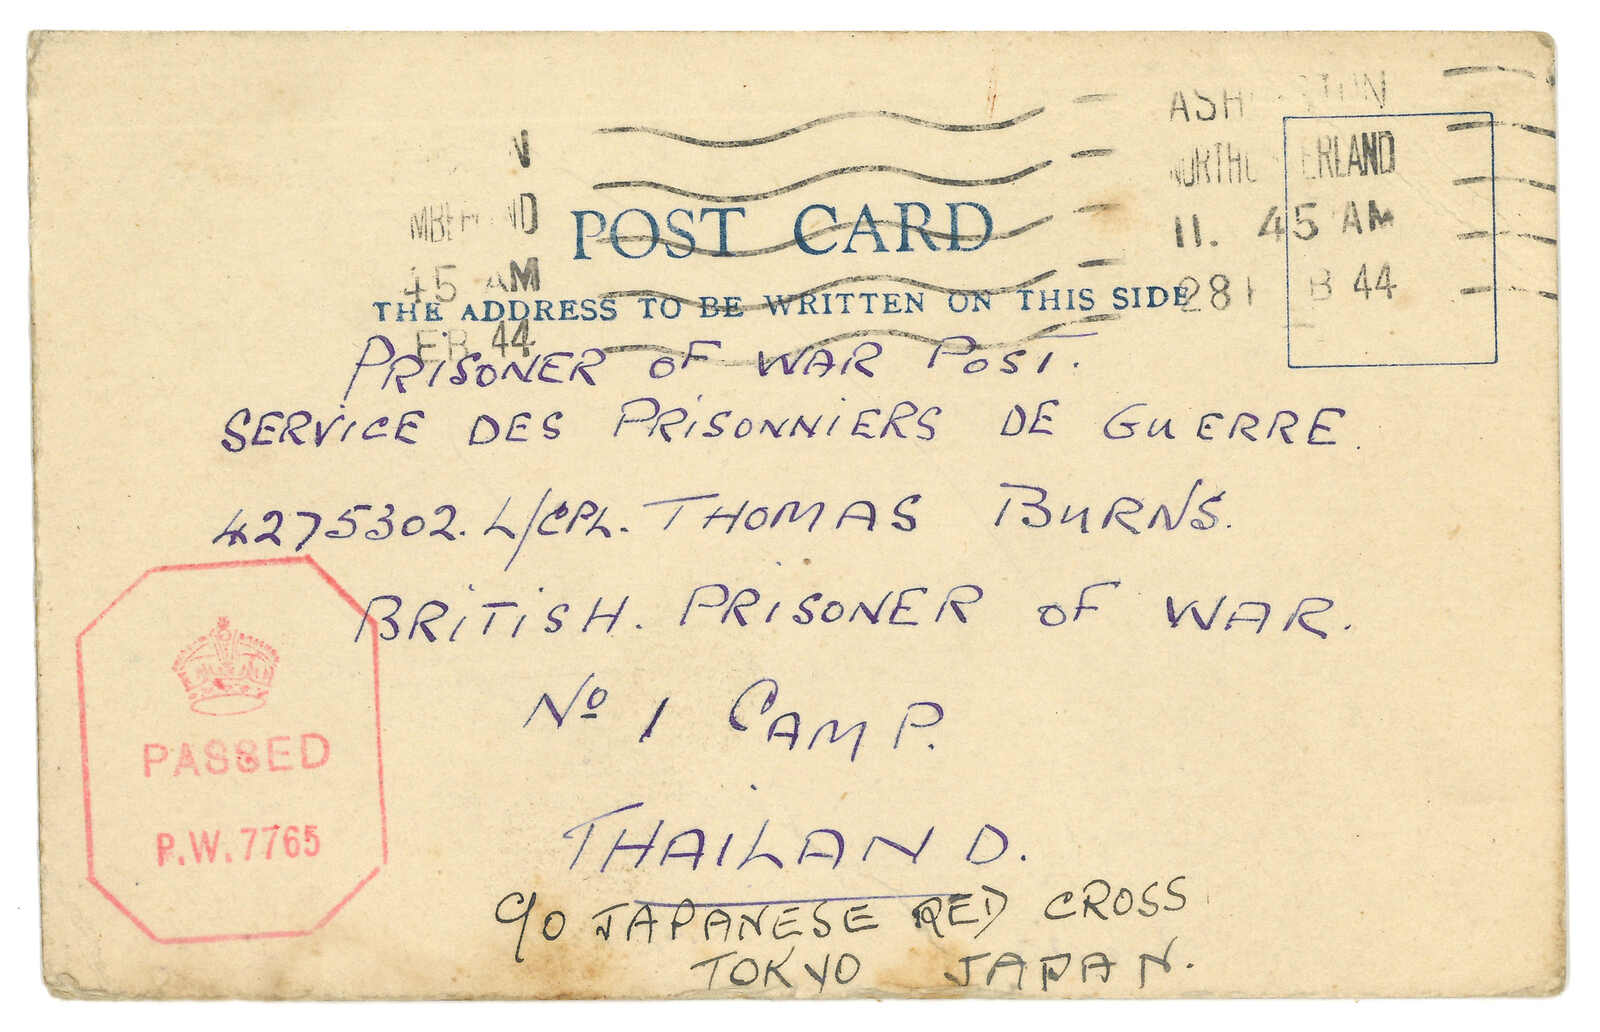 ASH TON
N
NORTHU ERLAND
MBER ND
11. 45 AM
45 AM
28 F B 44
EB 44
POST CARD
THE ADDRESS TO BE WRITTEN ON THIS SIDE
PRISONER OF WAR POST.
SERVICE DES PRISONNIERS DE GUERRE.
4275302. L/CPL. THOMAS BURNS.
BRITISH. PRISONER OF WAR.
Nº 1 CAMP.
THAILAND.
c/o JAPANESE RED CROSS
TOKYO JAPAN.
PASSED
P.W.7765